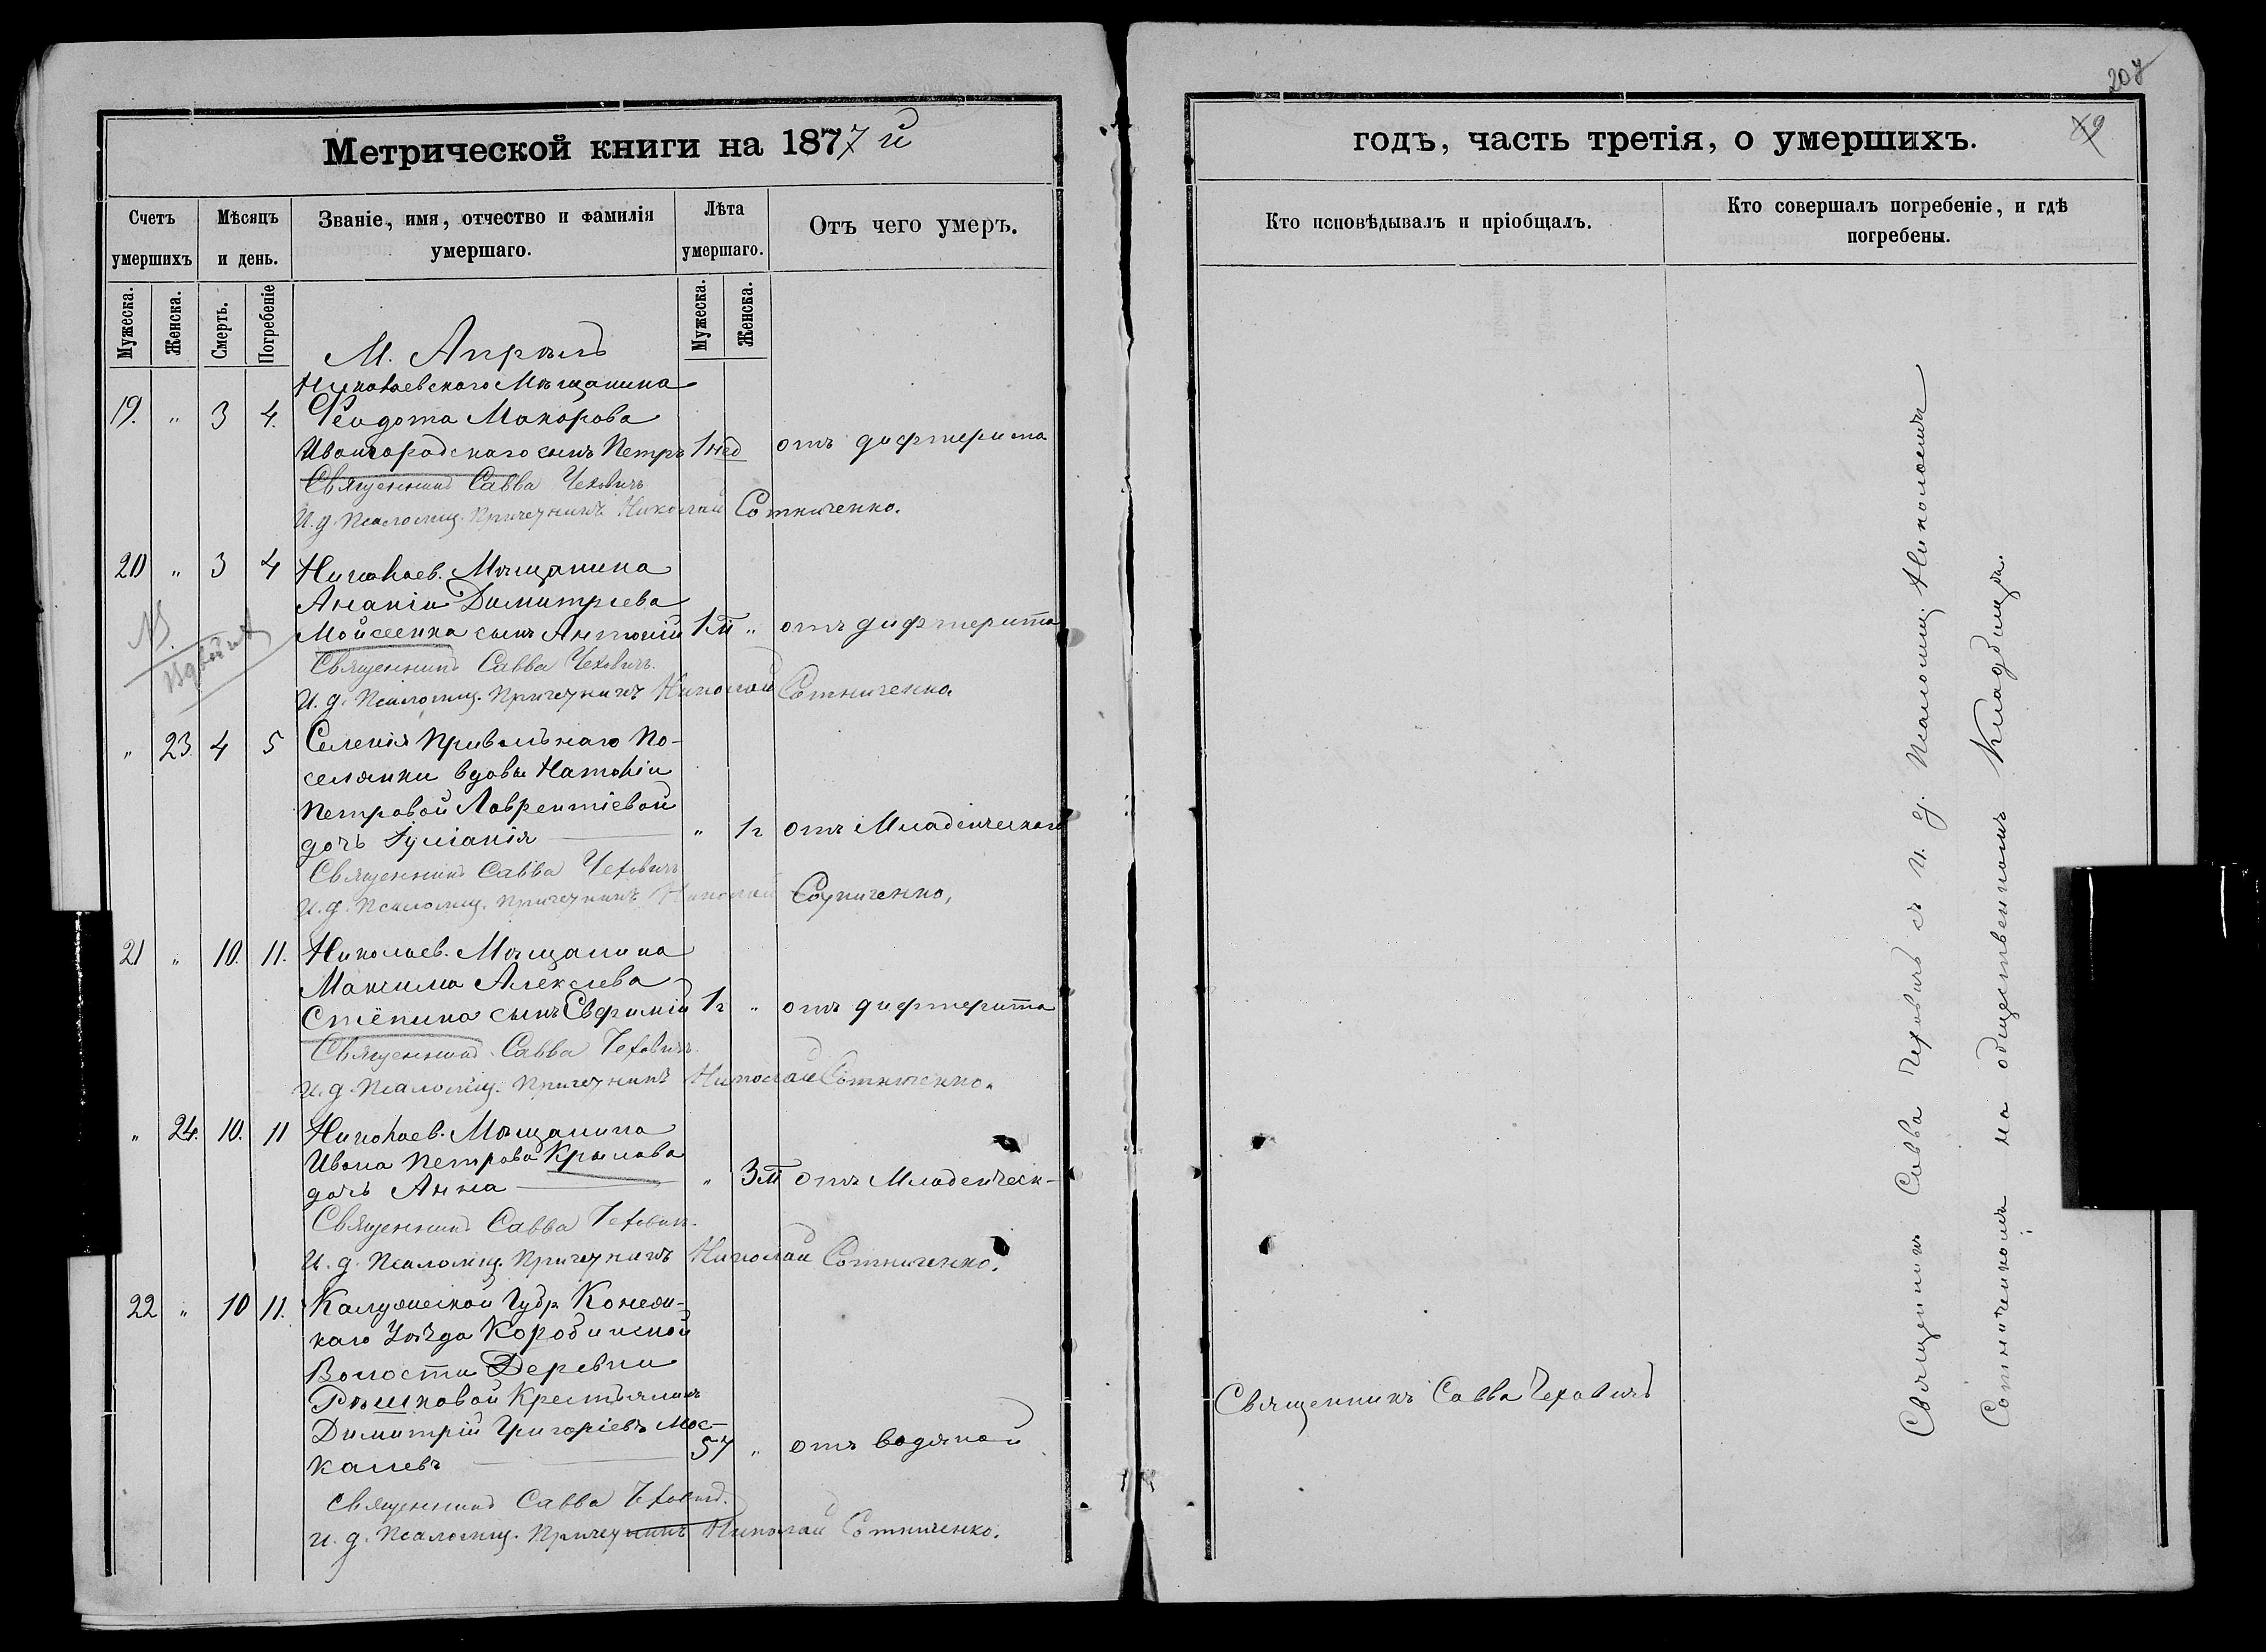 Метрической книги на 1877 й
Счетъ умершихъ
Мѣсяцъ и день.
Званіе, имя, отчество и фамилія умершаго.
Лѣта умершаго.
Отъ чего умеръ.
Мужеска.
Женска.
Смерть.
Погребеніе
Мужеска.
Женска.
М. Апрѣль
Николаевского Мѣщанина
19. " 3 4. Феодота Макарова
Ивангородскаго сынъ Петръ 1 нед отъ дифтерита
Священникъ Савва Чеховичъ
И. д. Псаломщ. Причетникъ Николай Сотниченко.
20 " 3 4 Николаев. Мѣщанина
Ананіи Димитріева
Мойсеенка сынъ Антоній 1 м " отъ дифтерита
Священникъ Савва Чеховичъ.
И. д. Псаломщ. Причетникъ Николай Сотниченко
" 23. 4 5 Селенія Привольнаго По-
селянки вдовы Наталіи
Петровой Лаврентіевой
дочь Іуліанія " 1 г отъ Младенческаго
Священникъ Савва Чеховичъ
И. д. Псаломщ. Причетникъ Николай Сотниченко,
21 " 10. 11. Николаев. Мѣщанина
Максима Алексеева
Стёпина сынъ Евфимій 1 г " отъ дифтерита
Священникъ Савва Чеховичъ.
И. д. Псаломщ. Причетникъ Николай Сотниченко.
" 24. 10. 11 Николаев. Мѣщанина
Ивана Петрова Крылова
дочь Анна " 3 м отъ Младенческ-
Священникъ Савва Чеховичъ.
И. д. Псаломщ. Причетникъ Николай Сотниченко.
22 " 10 11. Калужской Губр.
каго Уѣзда
Волости Деревни
Крестьянинъ
Димитрій Григоріевъ Мос-
калевъ 57 " отъ водяной
Священникъ Савва Чеховичъ.
И. д. Псаломщ. Причетникъ Николай Сотниченко.
208
годъ, часть третія, о умершихъ.
Кто исповѣдывалъ и пріобщалъ.
Кто совершалъ погребеніе, и гдѣ погребены.
Священникъ Савва Чеховичъ
Священникъ Савва Чеховичъ съ И. д. Псаломщ. Николаемъ
Сотниченкомъ на общественномъ Кладбищѣ.